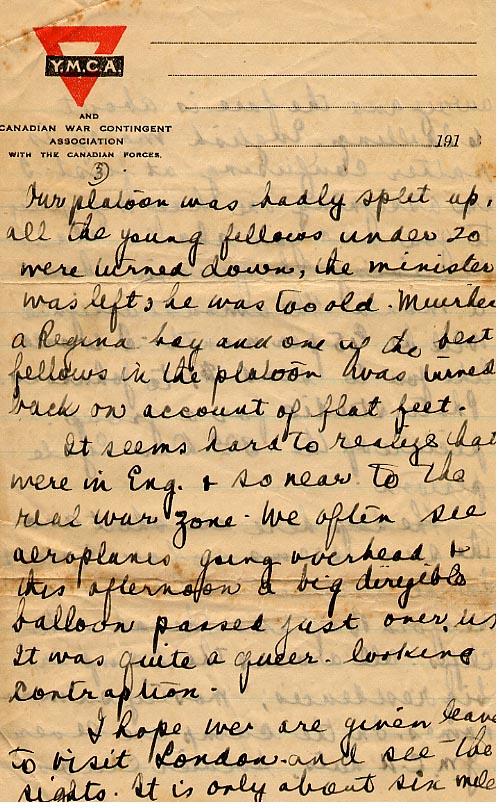 Y.M.C.A.
AND
CANADIAN WAR CONTINGENT
ASSOCIATION
WITH THE CANADIAN FORCES.
191
3).
Our platoon was badly split up,
all the young fellows under 20
were turned down, the minister
was left, he was too old.
a Regina boy and one of the best
fellows in the platoon was turned
back on account of flat feet.
It seems hard to realize that
were in Eng. & so near to the
real war zone. We often see
aeroplanes going overhead &
this afternoon a big dirigible
balloon passed just over us
It was quite a queer-looking
contraption.
I hope we are given leave
to visit London and see the
sights. It is only about six mile